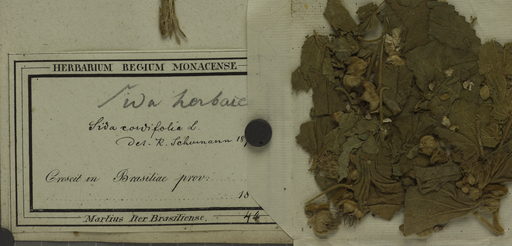 HERBARIUM REGIUM MONACENSE
Sida herbac
Sida cordifolia L.
Det. K. Schumann 18
Crescit in Brasiliae prov:
18
Martius Iter Brasiliense.